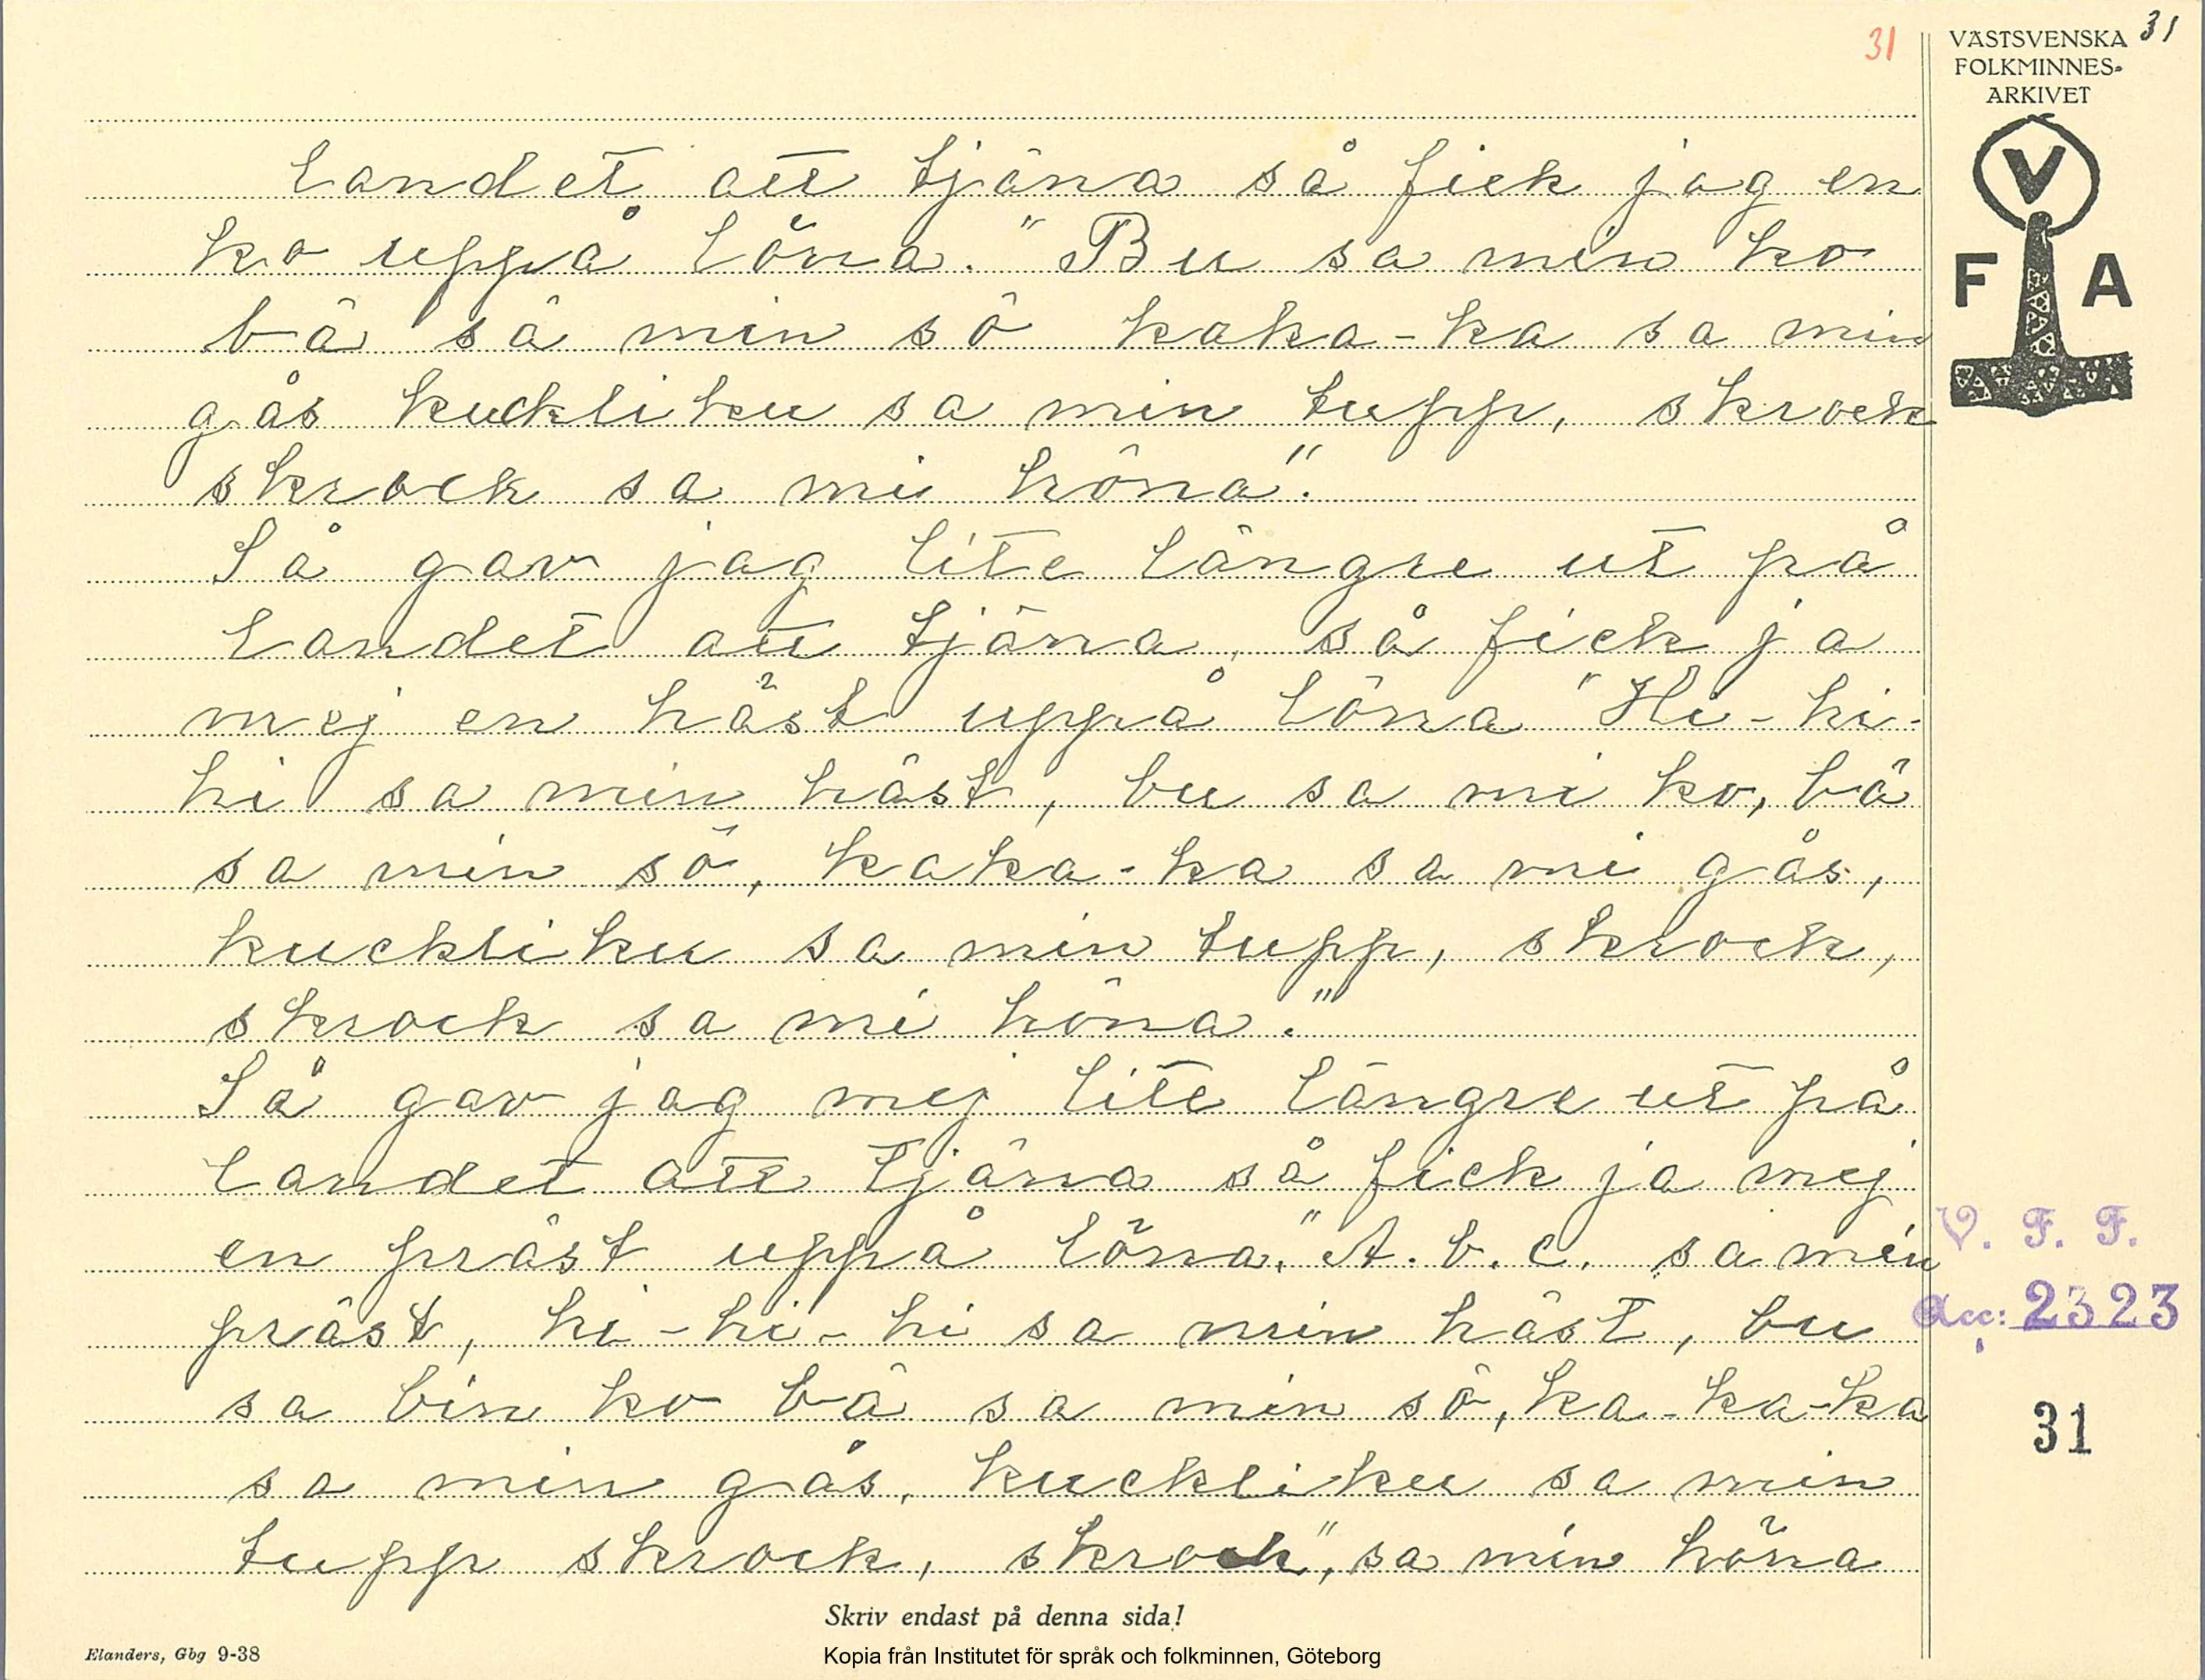 31
31
VÄSTSVENSKA
FOLKMINNES-
ARKIVET
V
F A
landet att tjäna så fick jag en
ko uppå löna. "Bu sa min ko
bä sä min sö kaka-ka sa min
gås kuckliku sa min tupp, skrock
skrock sa mi höna".
Så gav jag lite längre ut på
landet att tjäna, så fick ja
mej en häst uppå löna "Hi-hi-
hi sa min häst, bu sa mi ko, bä
sa min sö, kaka-ka sa mi gås,
kuckliku sa min tupp, skrock,
skrock sa mi höna."
Så gav jag mej lite längre ut på
landet att tjäna så fick ja mej
en präst uppå löna. "A. b. c. sa min
präst, hi-hi-hi sa min häst, bu
sa bin ko bä sa min sö, ka-ka-ka
sa min gås, kuckliku sa min
tupp skrock, skrock", sa min höna
V. F. F.
Acc: 2323
31
Skriv endast på denna sida!
Elanders, Gbg 9-38
Kopia från Institutet för språk och folkminnen, Göteborg